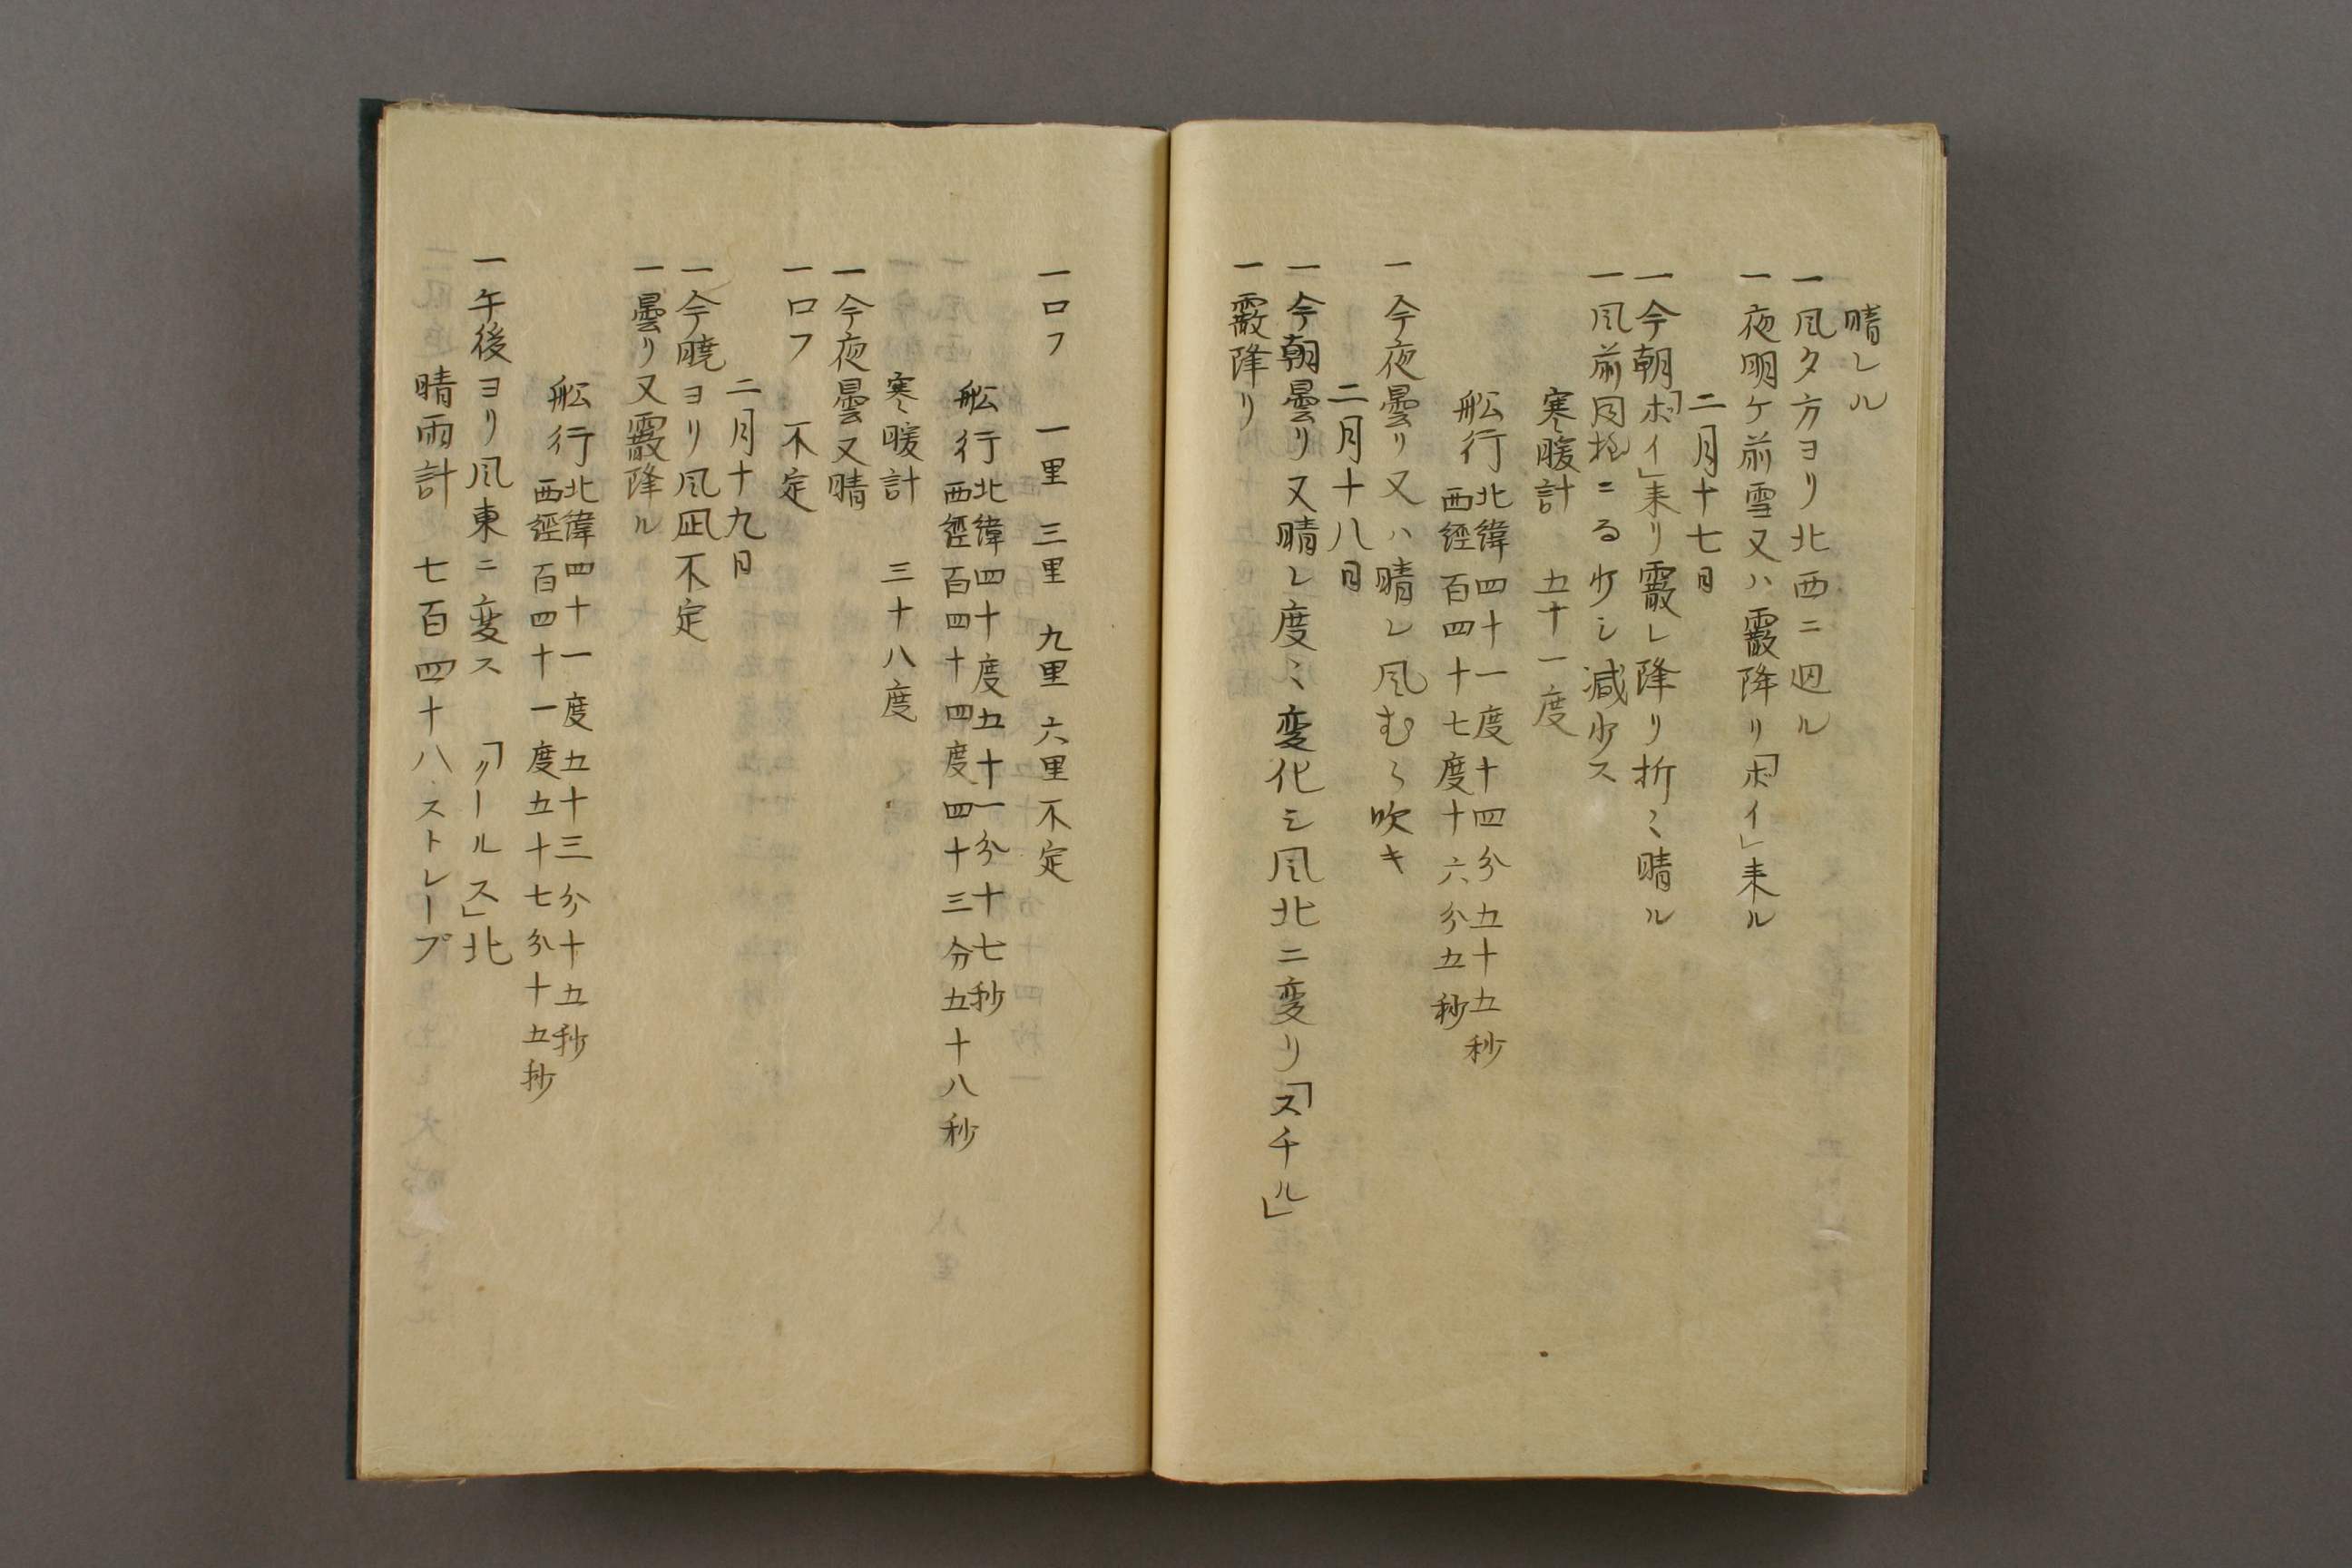 晴レル
一風夕方ヨリ北西ニ廻ル
一夜明ケ前雪又ハ霰降リ「ボイ」来ル
二月十七日
一今朝「ボイ」来リ霰レ降リ折ミ晴ル
一風前同樣ニる少シ減少ス
寒暖計 五十一度
舩行北緯四十一度十四分五十五秒
西經百四十七度十六分五秒
一今夜曇リ又ハ晴レ風むら吹キ
二月十八日
一今朝曇リ又晴レ度ミ変化シ風北ニ変リ「スチル」
一霰降リ
一ロフ 一里 三里 九里 六里 不定
舩行北緯四十度五十一分十七秒
西經百四十四度四十三分五十八秒
寒暖計 三十八度
一今夜曇又晴
一ロフ 不定
二月十九日
一今暁ヨリ風凪不定
一曇リ又霰降ル
舩行北緯四十一度五十三分十五秒
西經百四十一度五十七分十五秒
一午後ヨリ風東ニ変ス 「クールス」北
晴雨計 七百四十八ストレープ